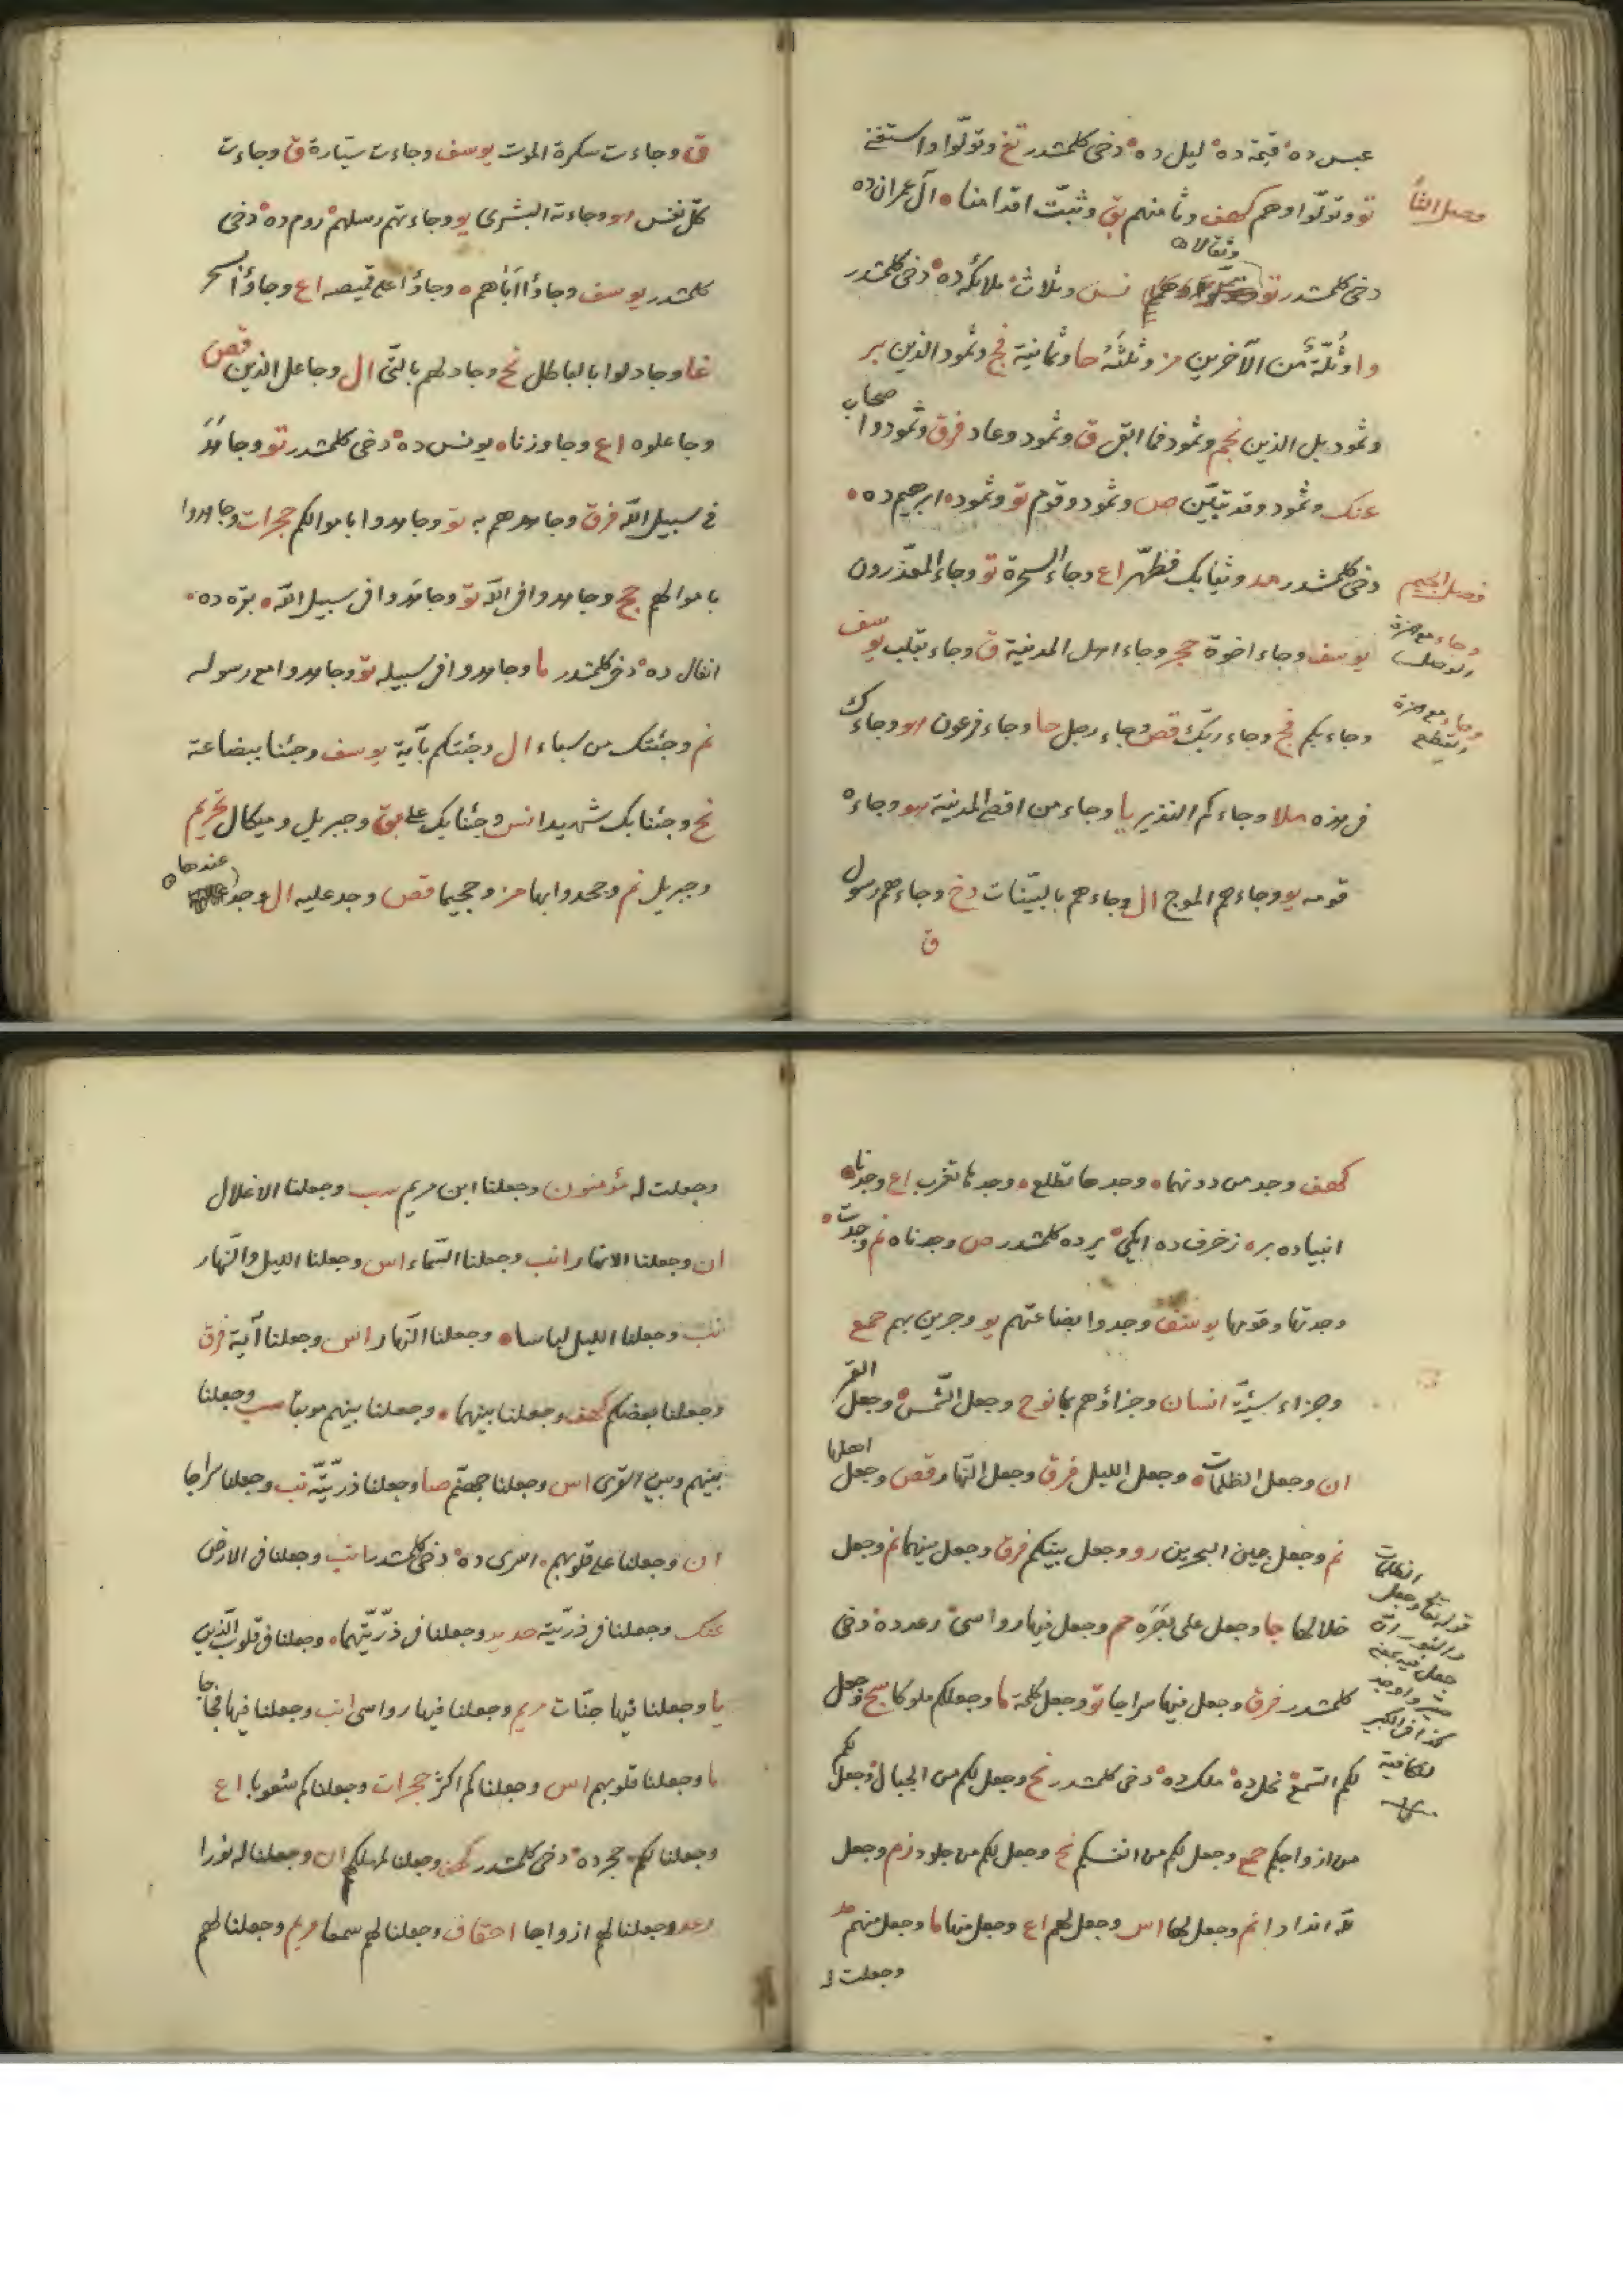 عبس ده قيمة ده ليل ده دخى كلمشدر تغ وتولّوا واستغنى
تو وتولّوا وهم كهف وثامنهم بق وثبّت اقدامنا آل عمران ده
فصل الثا
وثقالا
دخى كلمشدر تو نس وثلاث ملائكه ده دخى كلمشدر
وا وثلّة من الآخرين مز وثلثه حا وثمانية فج وثمود الذين بر
وثمود بل الذين نجم وثمود فما ابقى ق وثمود وعاد فرق وثمودوا صحاب
عنك وثمود وقد تبيّن ص وثمود وقوم تو وثموده ابرهيم ده
فصل الجيم
دخى كلمشدر مد وثيابك فطهّر اع وجاء السحرة تو وجاء المعذّرون
يوسف وجاء اخوة حجر وجاء اهل المدينة ق وجاء بقلب يوسف
وجاء بكم فج وجاء ربّك قص وجاء رجل حا وجاء فرعون هو وجاءك
فى هذه ملا وجاءكم النذير يا وجاء من اقصى المدينة هو وجاءه
قومه يو وجاءهم الموج ال وجاءهم بالبيّنات دخ وجاءهم رسول
ق
ق وجاءت سكرة الموت يوسف وجاءت سيّارة ق وجاءت
كلّ نفس هو وجاءته البشرى يو وجاءتهم رسلهم روم ده دخى
كلمشدر يوسف وجاؤا اباهم وجاؤا على قميصه اع وجاؤا بسحر
غا وجادلوا بالباطل نح وجادلهم بالتى ال وجاعل الذين قص
وجاعلوه اع وجاوزناه يونس ده دخى كلمشدر تو وجاهد
فى سبيل الله فرق وجاهدهم به تو وجاهدوا باموالكم حجرات وجاهدوا
باموالهم حج وجاهدوا فى الله تو وجاهدوا فى سبيل الله بقره ده
انفال ده دخى كلمشدر ما وجاهدوا فى سبيله تو وجاهدوا مع رسوله
نم وجئتك من سباء ال وجئتكم بآية يوسف وجئنا ببضاعة
نح وجئنا بك شهيدا نس وجئنا بك على بق وجبريل وميكال تحريم
وجبريل نم وجحدوا بها مز وجحيما قص وجد عليه ال وجد عندها
كهف وجد من دونهما وجدها تطلع وجدها تغرب اع وجدنا
انبياده بره زخرف ده ايكى يرده كلمشدر ص وجدناه نم وجدت
وجدتها وقومها يوسف وجدوا بضاعتهم يو وجرين بهم جمع
وجزاء سيّئة انسان وجزاؤهم بما نوح وجعل الشّمس وجعل القمر
ان وجعل الظلمات وجعل الليل فرق وجعل النّهار قص وجعل اهلها
نم وجعل بين البحرين رو وجعل بينكم فرق وجعل بينهما نم وجعل
خلالها جا وجعل على بصره حم وجعل فيها رواسى رعد ده دخى
كلمشدر فرق وجعل فيها سراجا تو وجعل كلمة ما وجعلكم ملوكا سج وجعل
لكم السّمع نحل ده ملك ده دخى كلمشدر نح وجعل لكم من الجبال وجعل لكم
من ازواجكم جمع وجعل لكم من انفسكم نح وجعل لكم من جلود زم وجعل
لله اندادا نم وجعل لها اس وجعل لهم اع وجعل منها ما وجعل منهم
وجعلت له
وجعلت له مؤمنون وجعلنا ابن مريم سب وجعلنا الاغلال
ان وجعلنا الانهار انب وجعلنا السّماء اس وجعلنا الليل والنّهار
نب وجعلنا الليل لباسا وجعلنا النّهار اس وجعلنا آية فرق
وجعلنا بعضكم كهف وجعلنا بينهما وجعلنا بينهم موبقا سب وجعلنا
بينهم وبين القرى اس وجعلنا جهنّم صا وجعلنا ذرّيّته نب وجعلنا سراجا
ان وجعلنا على قلوبهم اسرى ده دخى كلمشدر انب وجعلنا فى الارض
عنك وجعلنا فى ذرّيّته حديد وجعلنا فى ذرّيّتهما وجعلنا فى قلوب الّذين
يا وجعلنا فيها جنّات مريم وجعلنا فيها رواسى انب وجعلنا فيها فجاجا
ما وجعلنا قلوبهم اس وجعلناكم اكثر حجرات وجعلناكم شعوبا اع
وجعلنا لكم حجر ده دخى كلمشدر كهف وجعلنا لمهلكهم ان وجعلنا له نورا
رعد وجعلنا لهم ازواجا احقاف وجعلنا لهم سمعا مريم وجعلنا لهم